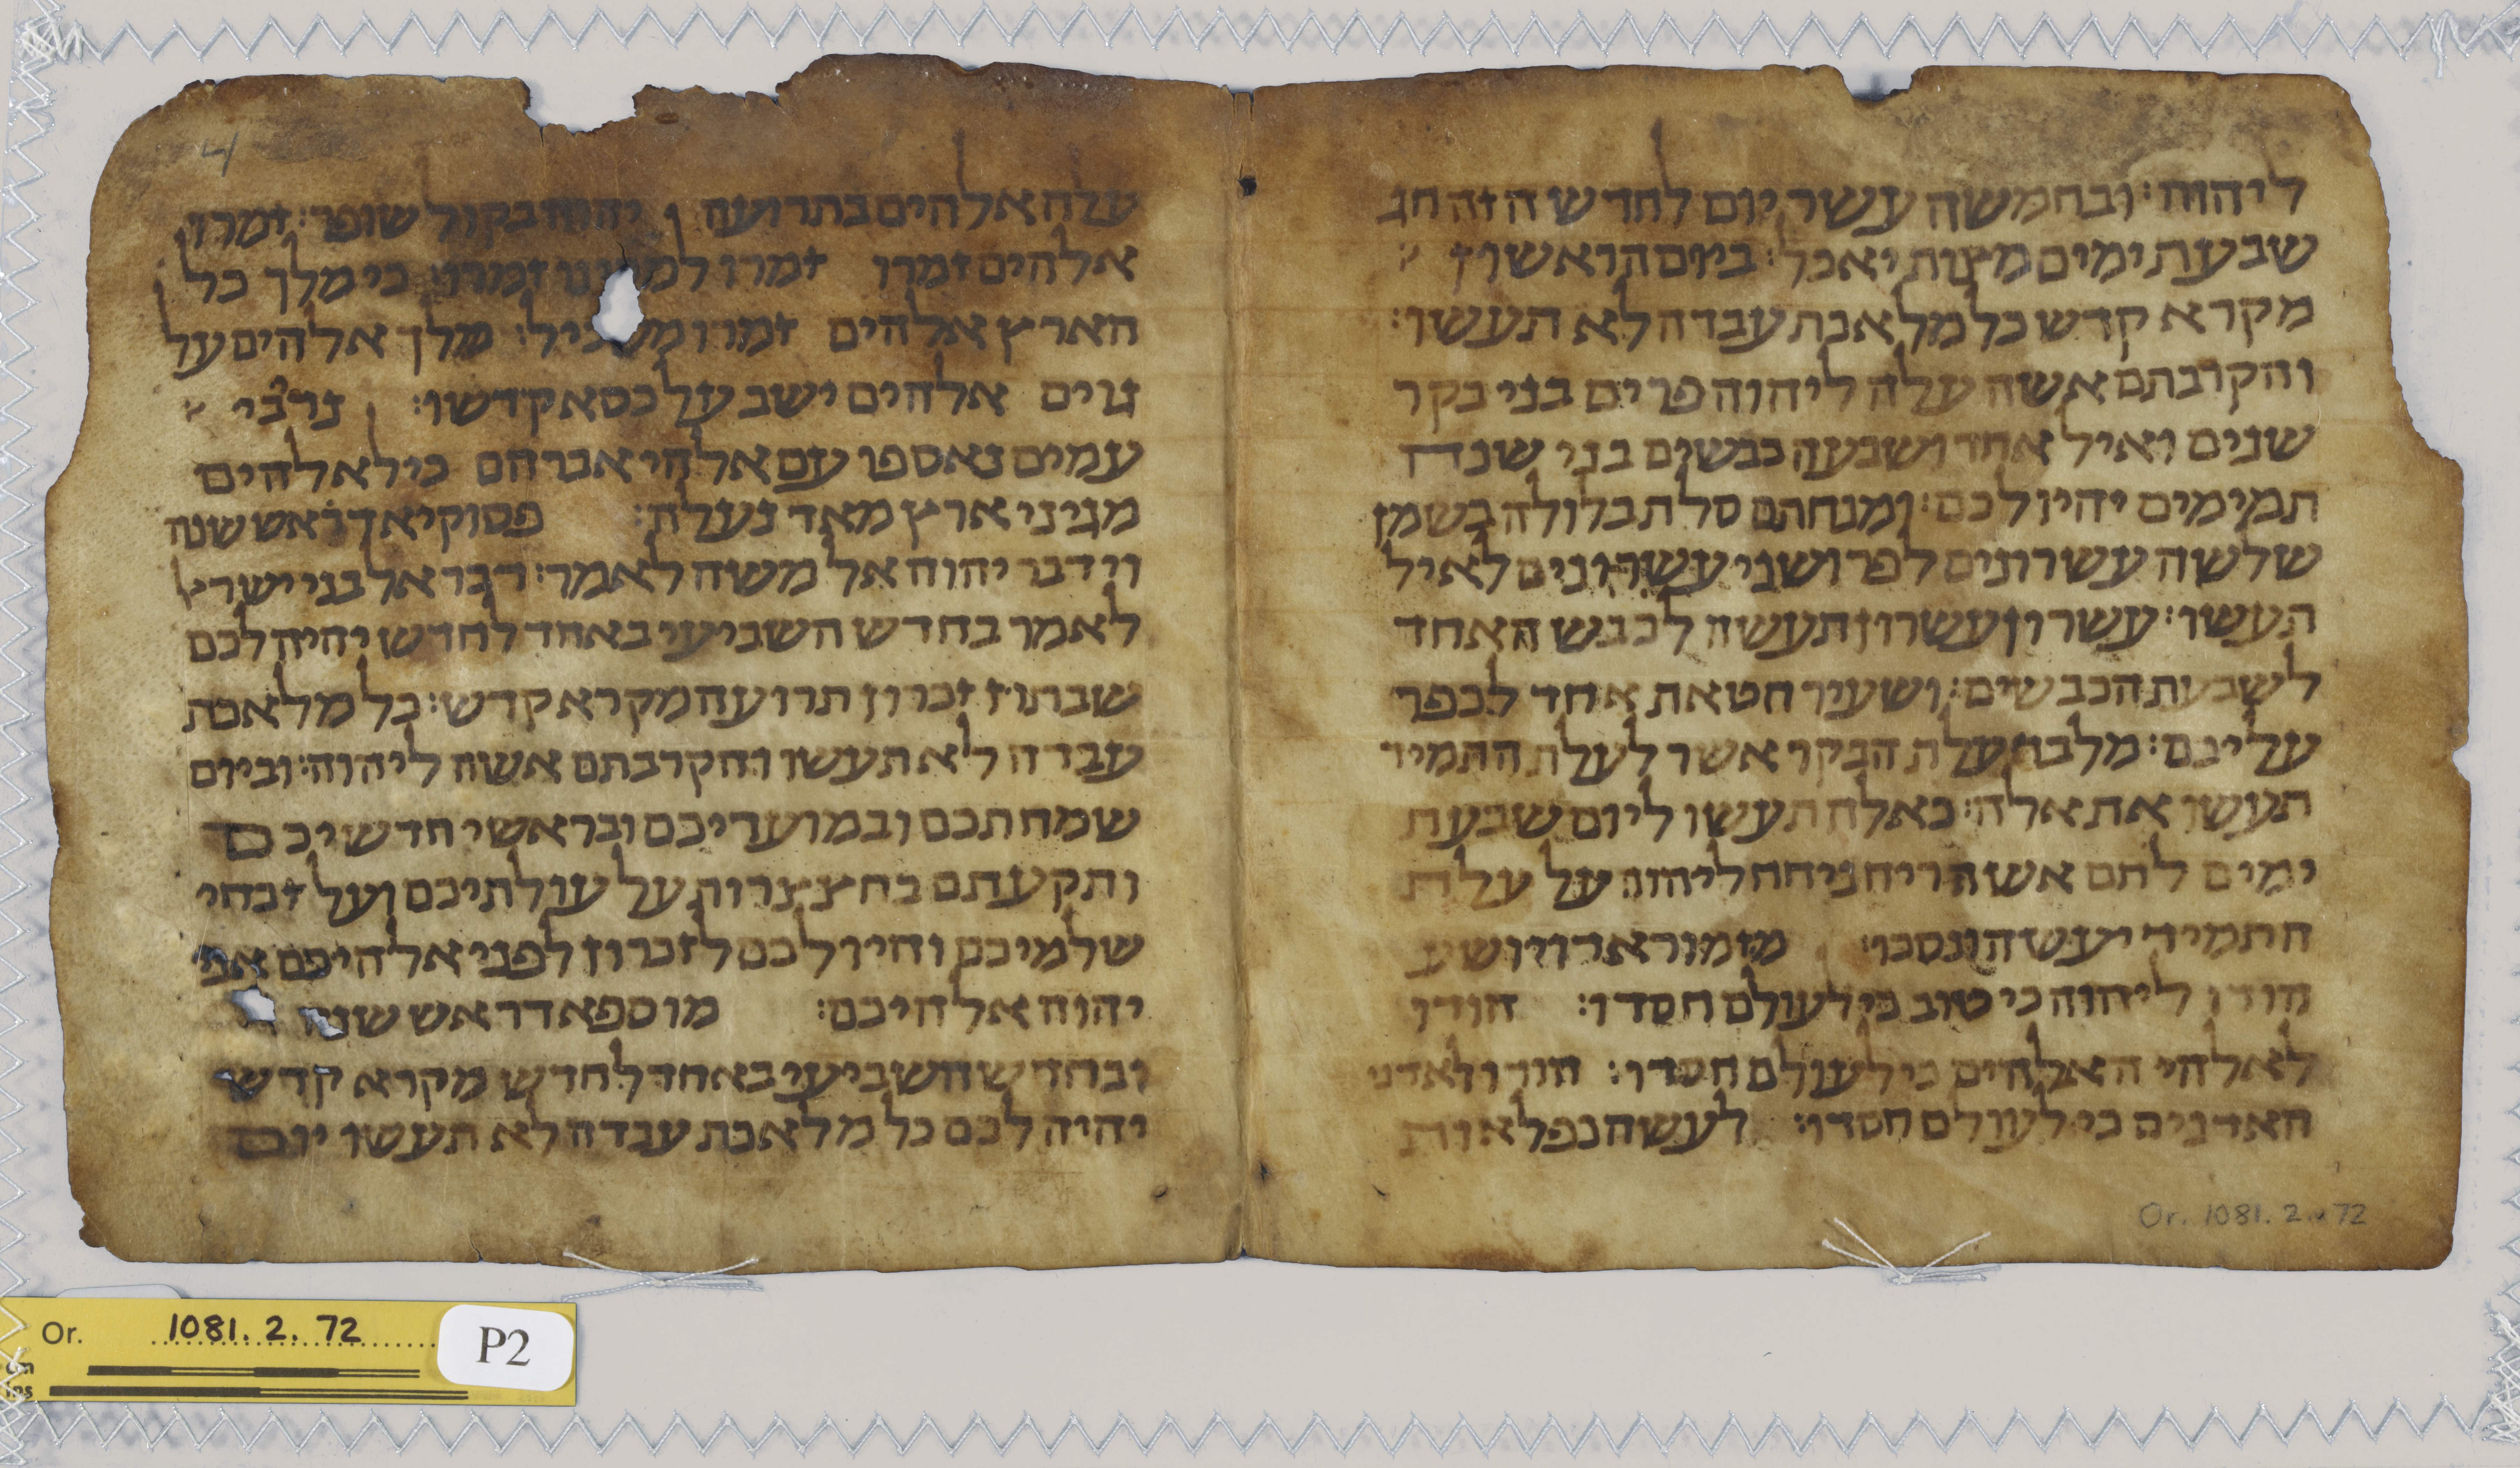 ליהוה: ובחמשה עשר יום לחדש הזה חג
שבעת ימים מצות יאכל: ביום הראשון
מקרא קדש כל מלאכת עבדה לא תעשו:
והקרבתם אשה עלה ליהוה פרים בני בקר
שנים ואיל אחד ושבעה כבשים בני שנה
תמימים יהיו לכם: ומנחתם סלת בלולה בשמן
שלשה עשרנים לפר ושני עשרונים לאיל
תעשו: עשרון עשרון תעשה לכבש האחד
לשבעת הכבשים: ושעיר חטאת אחד לכפר
עליכם: מלבד עלת הבקר אשר לעלת התמיד
תעשו את אלה: כאלה תעשו ליום שבעת
ימים לחם אשה ריח ניחח ליהוה על עלת
התמיד יעשה ונסכו: מזמור
הודו ליהוה כי טוב כי לעולם חסדו: הודו
לאלהי האלהים כי לעולם חסדו: הודו לאדני
האדנים כי לעולם חסדו: לעשה נפלאות
עלה אלהים בתרועה יהוה בקול שופר: זמרו
אלהים זמרו זמרו זמרו: כי מלך כל
הארץ אלהים זמרו מלך אלהים על
גוים אלהים ישב על כסא קדשו: נדיבי
עמים נאספו עם אלהי אברהם כי לאלהים
מגיני ארץ מאד נעלה: פסוקיא דראש שנה
וידבר יהוה אל משה לאמר: דבר אל בני ישר
לאמר בחדש השביעי באחד לחדש יהיה לכם
שבתון זכרון תרועה מקרא קדש: כל מלאכת
עבדה לא תעשו והקרבתם אשה ליהוה: וביום
שמחתכם ובמועדיכם ובראשי חדשיכם
ותקעתם בחצצרות על עולתיכם ועל זבחי
שלמיכם והיו לכם לזכרון לפני אלהיכם אני
יהוה אלהיכם: מוספא דראש
ובחדש השביעי באחד לחדש מקרא קדש
יהיה לכם כל מלאכת עבדה לא תעשו יום
Or. 1081. 2. 72
Or. 1081. 2. 72
P2
cm
ins